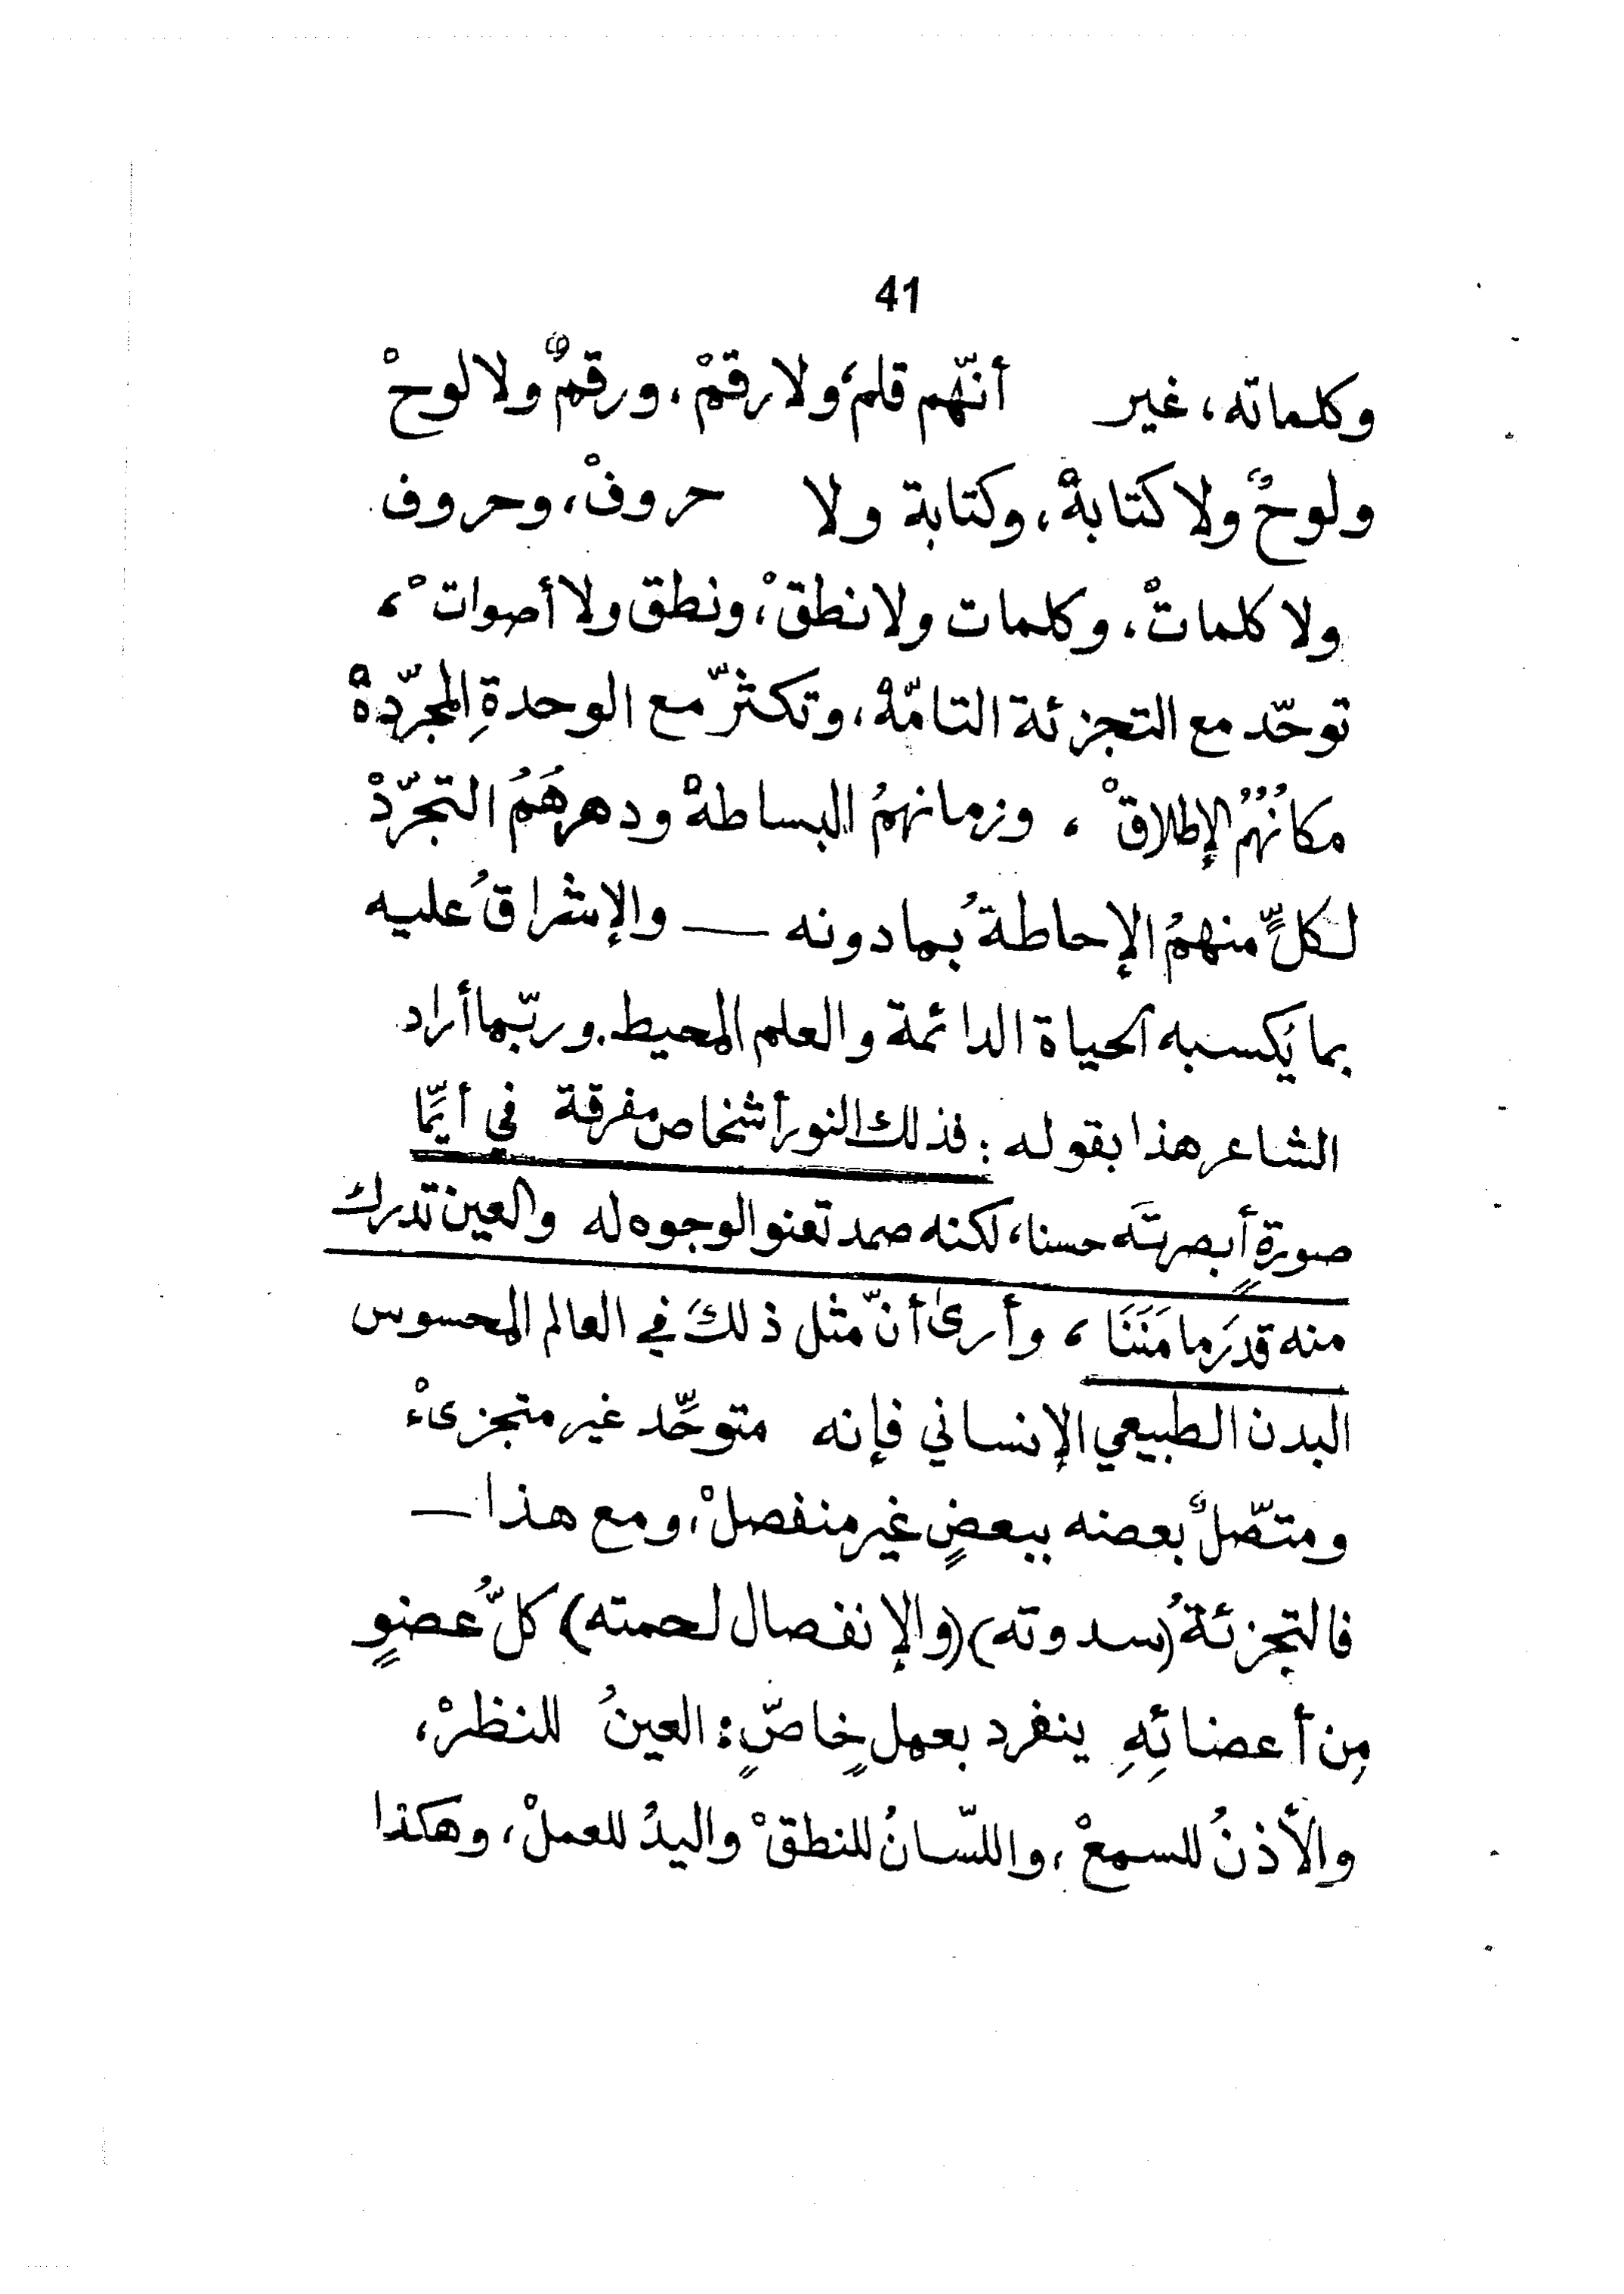 41
وكلماته، غير أنّهم قلمٌ ولا رقمْ، ورقمٌ ولا لوحْ
ولوحٌ ولا كتابةْ، وكتابة ولا حروفْ، وحروف
ولا كلماتْ، وكلمات ولا نطقْ، ونطق ولا أصواتْ،
توحّد مع التجزئة التامّةْ، وتكثّر مع الوحدةِ المجرّدةْ
مكانُهُمُ الإطلاقْ، وزمانهمُ البساطةْ ودهرهُمُ التجرّدْ
لكلٍّ منهمُ الإحاطةُ بما دونه — والإشراقُ عليه
بما يَكسبه الحياة الدائمة والعلم المحيط. وربّما أراد
الشاعر هذا بقوله: فذلك النور أشخاص مفرقة في أيِّما
صورةٍ أبصرتَه حسنا، لكنه صمد تعنو الوجوه له والعين تدرك
منه قدرَ ما مَنَنَا، وأرى أنّ مثل ذلكَ في العالم المحسوس
البدن الطبيعي الإنساني فإنه متوحِّد غير متجزىءْ
ومتصّلٌ بعضه ببعضٍ غير منفصلْ، ومع هذا —
فالتجزئةُ (سدوته) (والإنفصال لحمته) كلُّ عضوٍ
مِن أعضائِهِ ينفرد بعملٍ خاصٍّ: العينُ للنظرْ،
والأذنُ للسمعْ، واللّسانُ للنطقْ واليدُ للعملْ، وهكذا